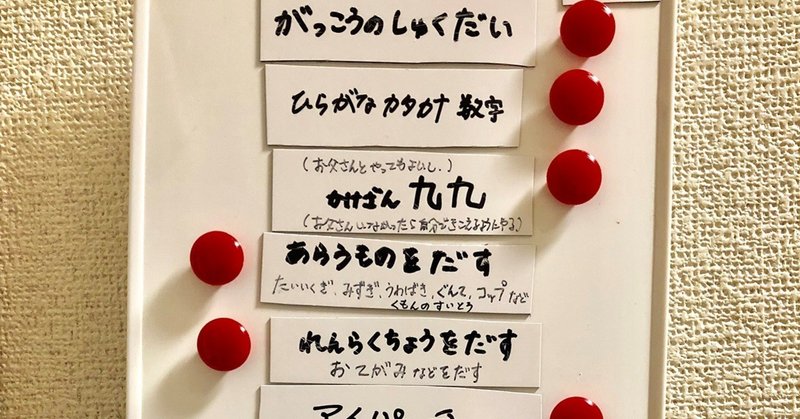 がっこうのしゅくだい
ひらがなカタカナ 数字
(お父さんとやってもよいし.)
かけざん 九九
(お父さんいなかったら自分できこえるようにやる)
あらうものをだす
たいいくぎ、みずぎ、うわばき、ぐんて、コップなど
くもんのすいとう
れんらくちょうをだす
おてがみなどをだす